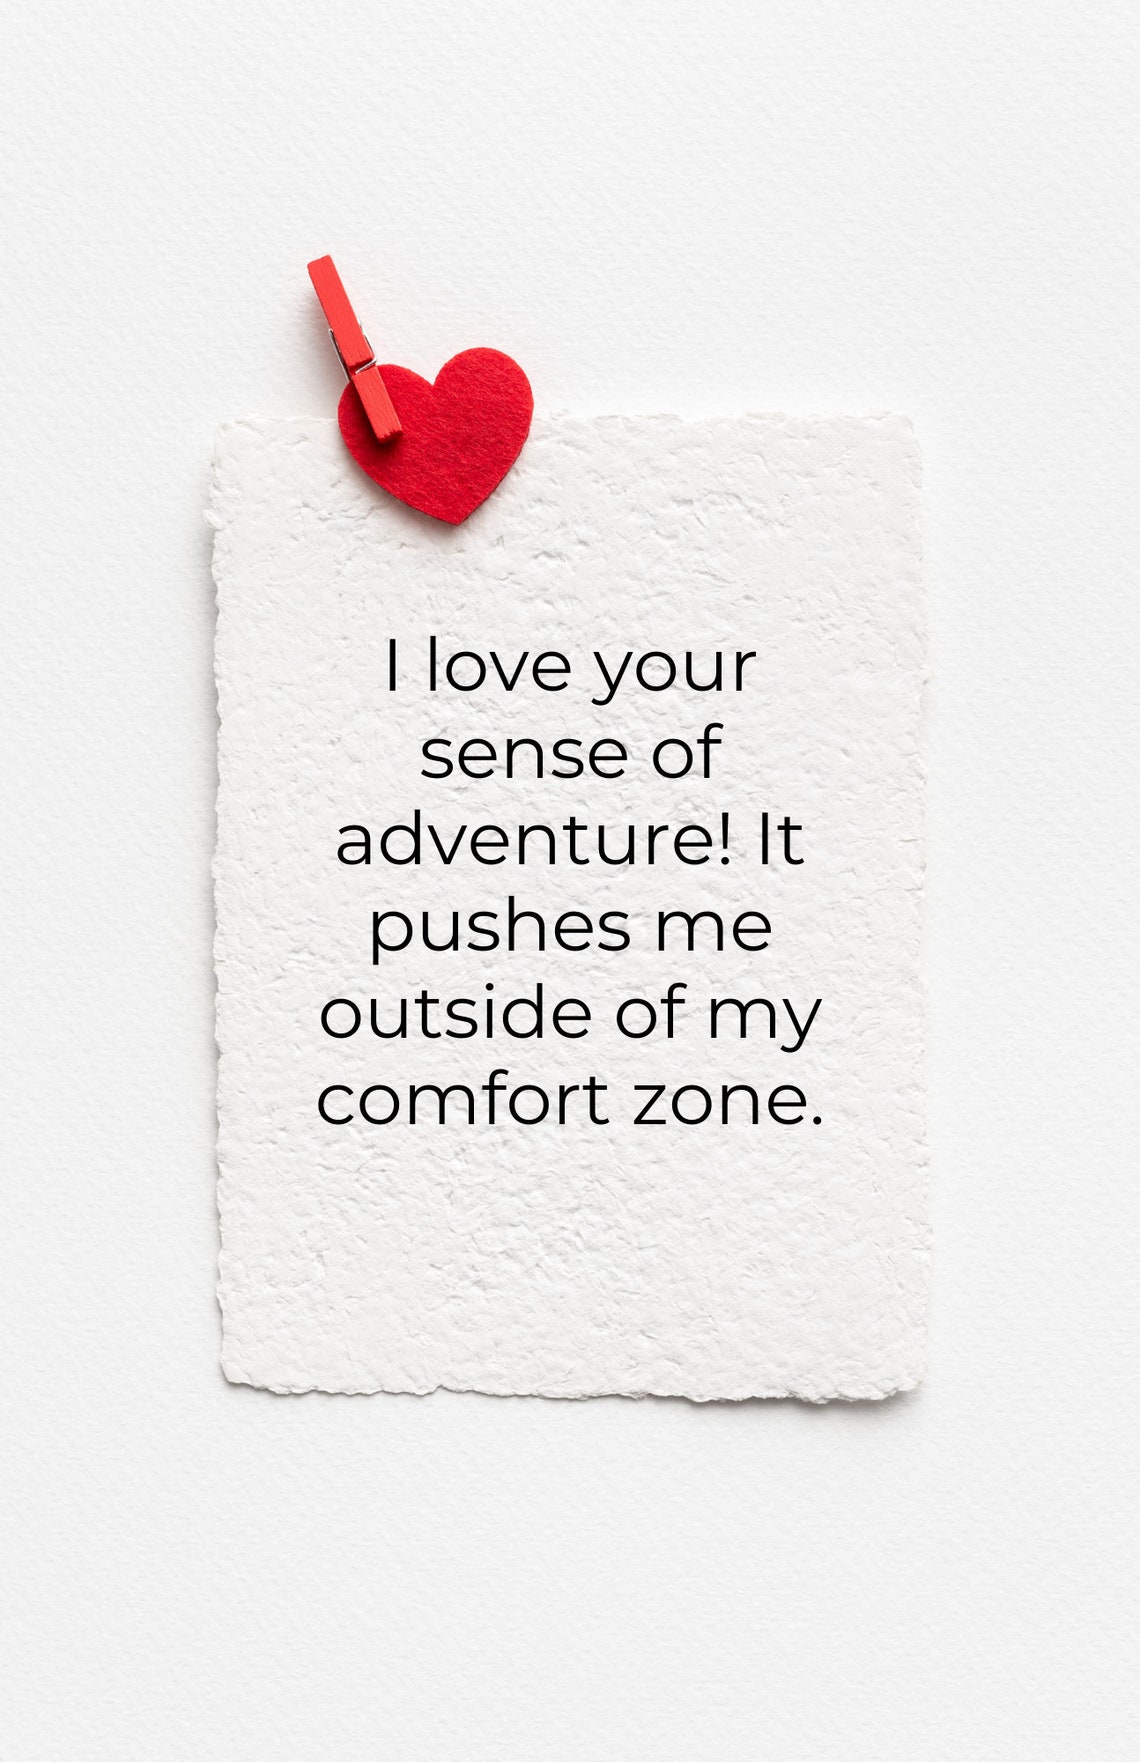 I love your
sense of
adventure! It
pushes me
outside of my
comfort zone.